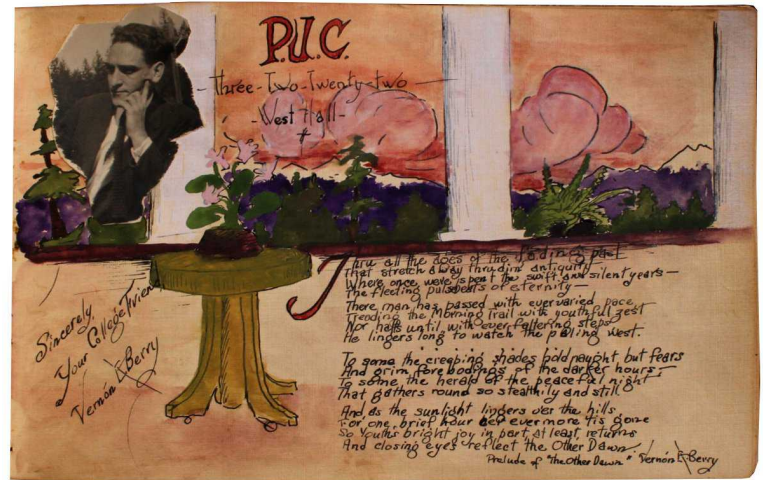 P.U.C.
Three-Two-Twenty-two
-West Hall-
Sincerely
Your College Friend
Vernon E Berry
Thru all the ages of the past
That stretch away thru dim antiquity
Where once were spent the swift and silent years—
The fleeting pulsbeats of eternity—
There man has passed with ever varied pace
Treading the Morning Trail with youthful zest
Nor halts until with ever faltering steps
He lingers long to watch the paling West.
To some the creeping shades hold naught but fears
And grim forebodings of the darker hours:—
To some, the herald of the peaceful night
That gathers round so stealthily and still
And as the sunlight lingers o'er the hills
For one, brief hour ere evermore tis gone
So Youths bright joy in part, at least, returns
And closing eyes reflect the Other Dawn
Prelude of "The Other Dawn" Vernon E Berry